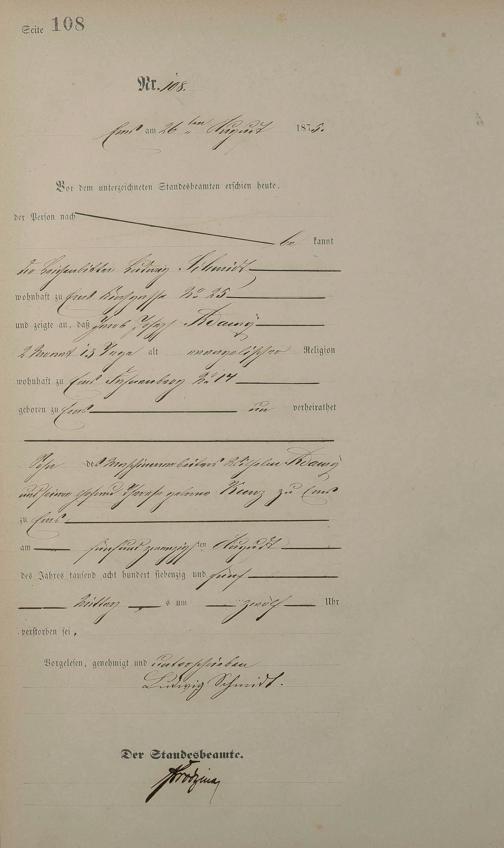 Seite 108
Nr. 108.
Ems am 26ten August 1875.
Vor dem unterzeichneten Standesbeamten erschien heute,
der Person nach
be kannt
der Leichenbitter Ludwig Schmidt
wohnhaft zu Ems No 25
und zeigte an, daß Jacob Joseph
2 Monat 13 Tage alt evangelischer Religion
wohnhaft zu Ems No 14
geboren zu Ems un verheirathet
Sohn des Wilhelm
und seiner geborene Kunz zu Ems
zu Ems
am fünf und zwanzigsten August
des Jahres tausend acht hundert siebenzig und fünf
Mittag s um zwölf Uhr
verstorben sei.
Vorgelesen, genehmigt und unterschrieben
Ludwig Schmidt.
Der Standesbeamte.